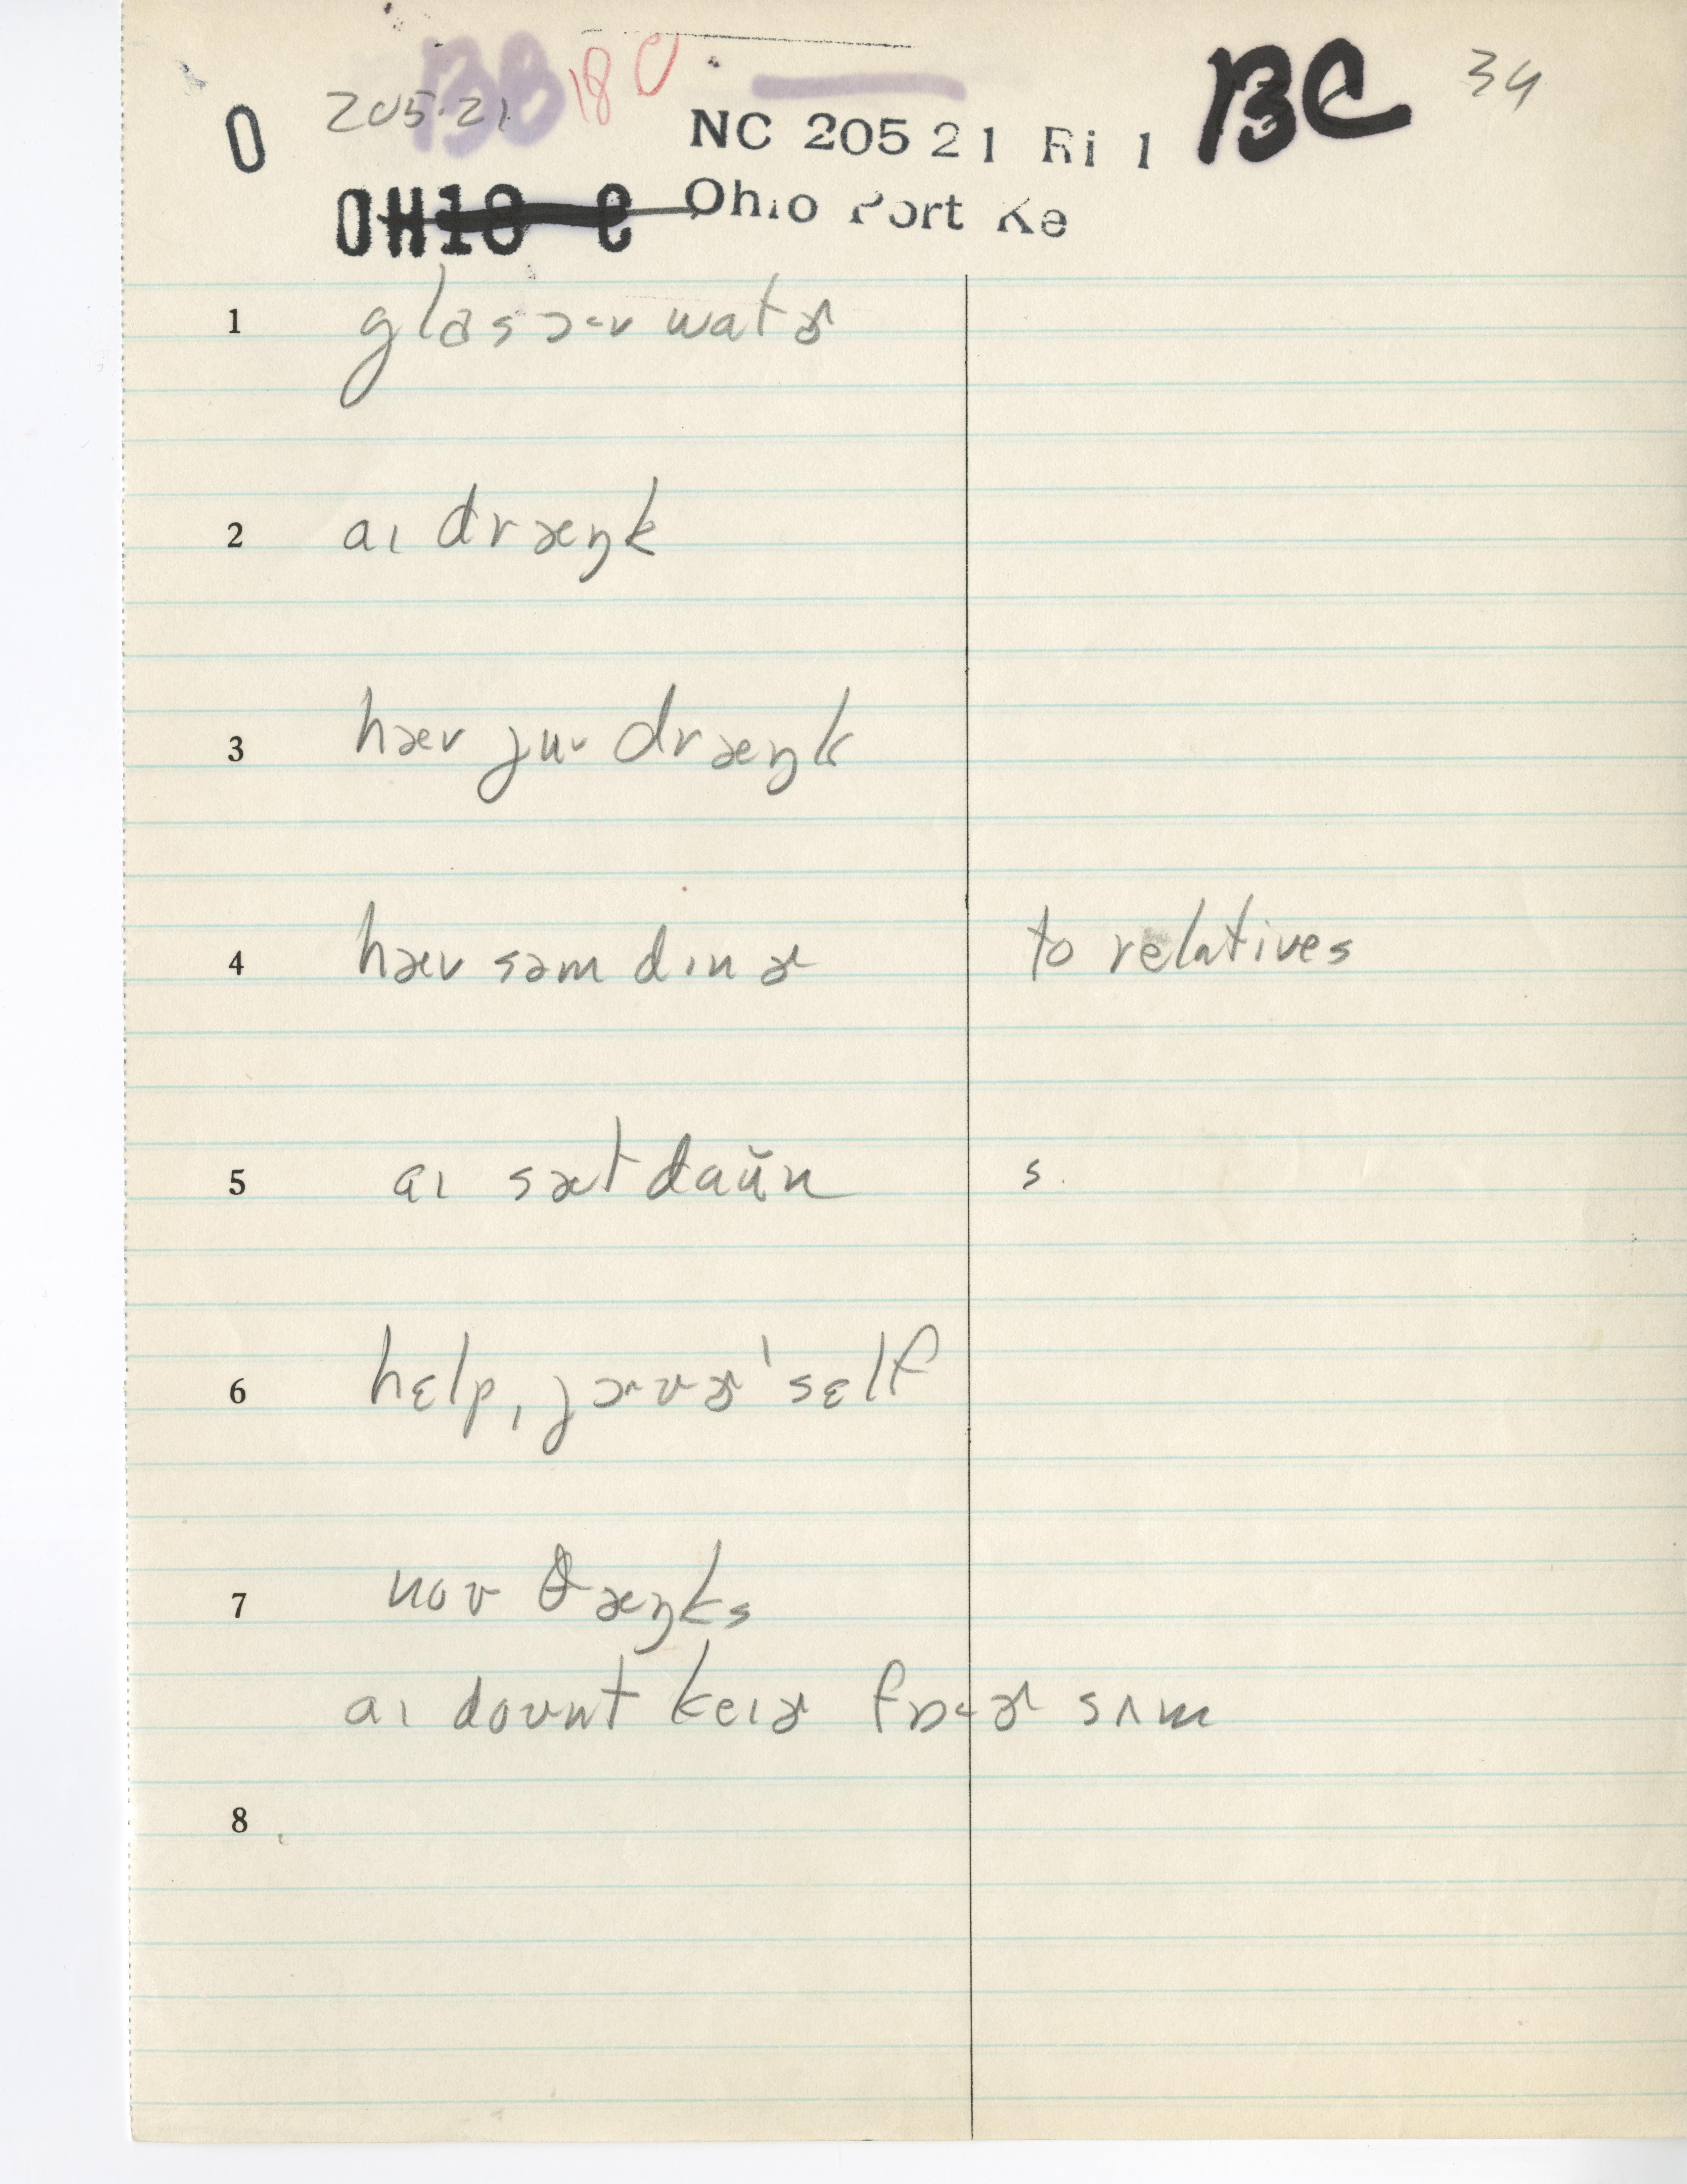 BB 18 C
BC 34
0 205.21
NC 205 21 Ri 1
OH10 C Ohio Port Ke
1 glas ə˞v watɚ
2 aɪ dræŋk
3 hæv juʊ dræŋk
4 hæv səm dɪnɚ to relatives
5 aɪ sæt daʊ̆n s.
6 hɛlpˌjɔ˞ʊɚˈsɛlf
7 noʊ θæŋks
aɪ doʊnt keɪɚ fɒ˂ɚ sʌm
8